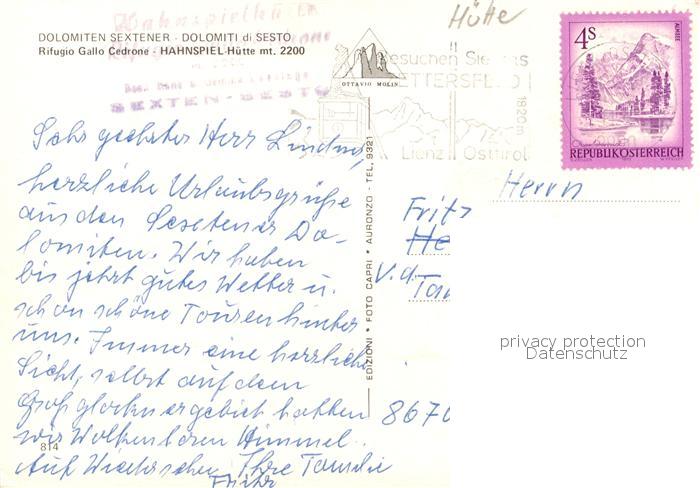 Hütte
DOLOMITEN SEXTENER - DOLOMITI di SESTO
Rifugio Gallo Cedrone - HAHNSPIEL-Hütte mt. 2200
Hahnspielhütte
SEXTEN - SESTO
OTTAVIO MOLIN
Besuchen Sie das
ZETTERSFELD
1820 m
Lienz Osttirol
4S
ALMSEE
REPUBLIK ÖSTERREICH
Sehr geehrter Herr Lindner,
herzliche Urlaubsgrüße
aus den Sextener Do-
lomiten. Wir haben
bis jetzt gutes Wetter u.
schon schöne Touren hinter
uns. Immer eine herrliche
Sicht, selbst auf dem
Großglocknergebiet hatten
wir Wolkenlosen Himmel.
Auf Wiedersehen Ihre
814
EDIZIONI * FOTO CAPRI * AURONZO - TEL. 9321
Herrn
Fritz
He
V.d.
Tan
8670
privacy protection
Datenschutz